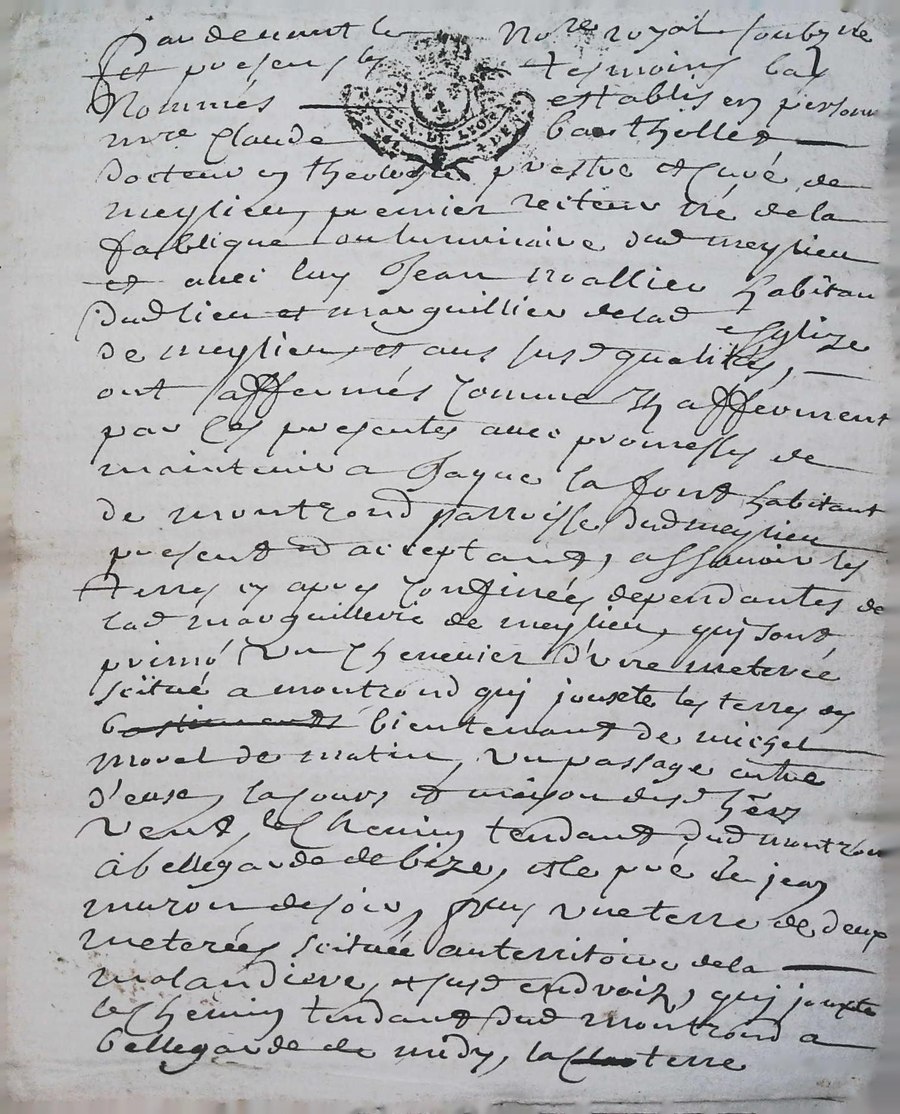 Pardevant le Nore royal soubzné
et presens les tesmoins bas
Nommés establis en personne
mre Claude barthollet
docteur en theologie prestre et curé de
meylieu, premier recteur né de la
fabrique ou luminaire dud meylieu
et avec luy Jean noallieu habitan
dud lieu et marguillier de lad esglize
de meylieu, et aux susd qualités,
ont affermés comme ils afferment
par ces presentes avec promesse de
maintenir a Jaque la font habitant
de montrond parroisse dud meylieu
present et acceptant, assavoir les
terres cy apres confinées dependantes de
lad marguillerie de meylieu, qui sont
primó Un Chenevier d'une meterée
scitué a montrond qui jouxte les terres et
bastiments bientenant de michel
morel de matin, un passage entre
d'eux, la cour et maison desd hers
vent, le chemin tendant dud montron
a bellegarde de bize, et le pré de jean
muron de soir, plus une terre de deux
meterées scituée au territoire de la
malandiere, et susd endroit, qui jouxte
le chemin tendant dud montrond a
bellegarde de midy, la terre
GEN DE LYON